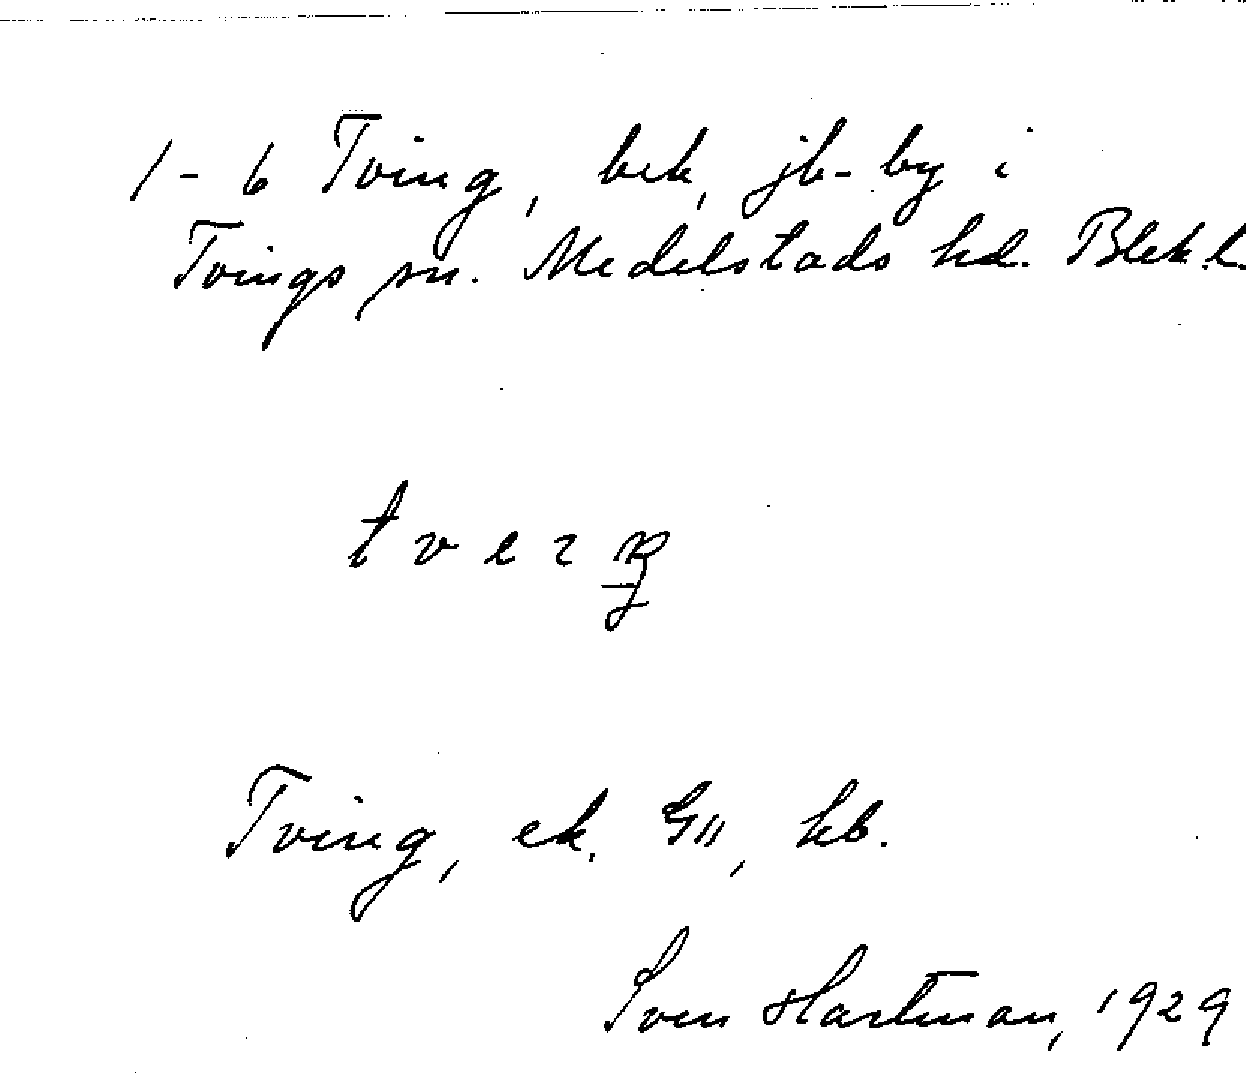 1-6 Tving, bek, jb-by i
Tvings sn. Medelstads hd. Blek.l.
Tving, ek. 511, hb.
Sven Hartman, 1929